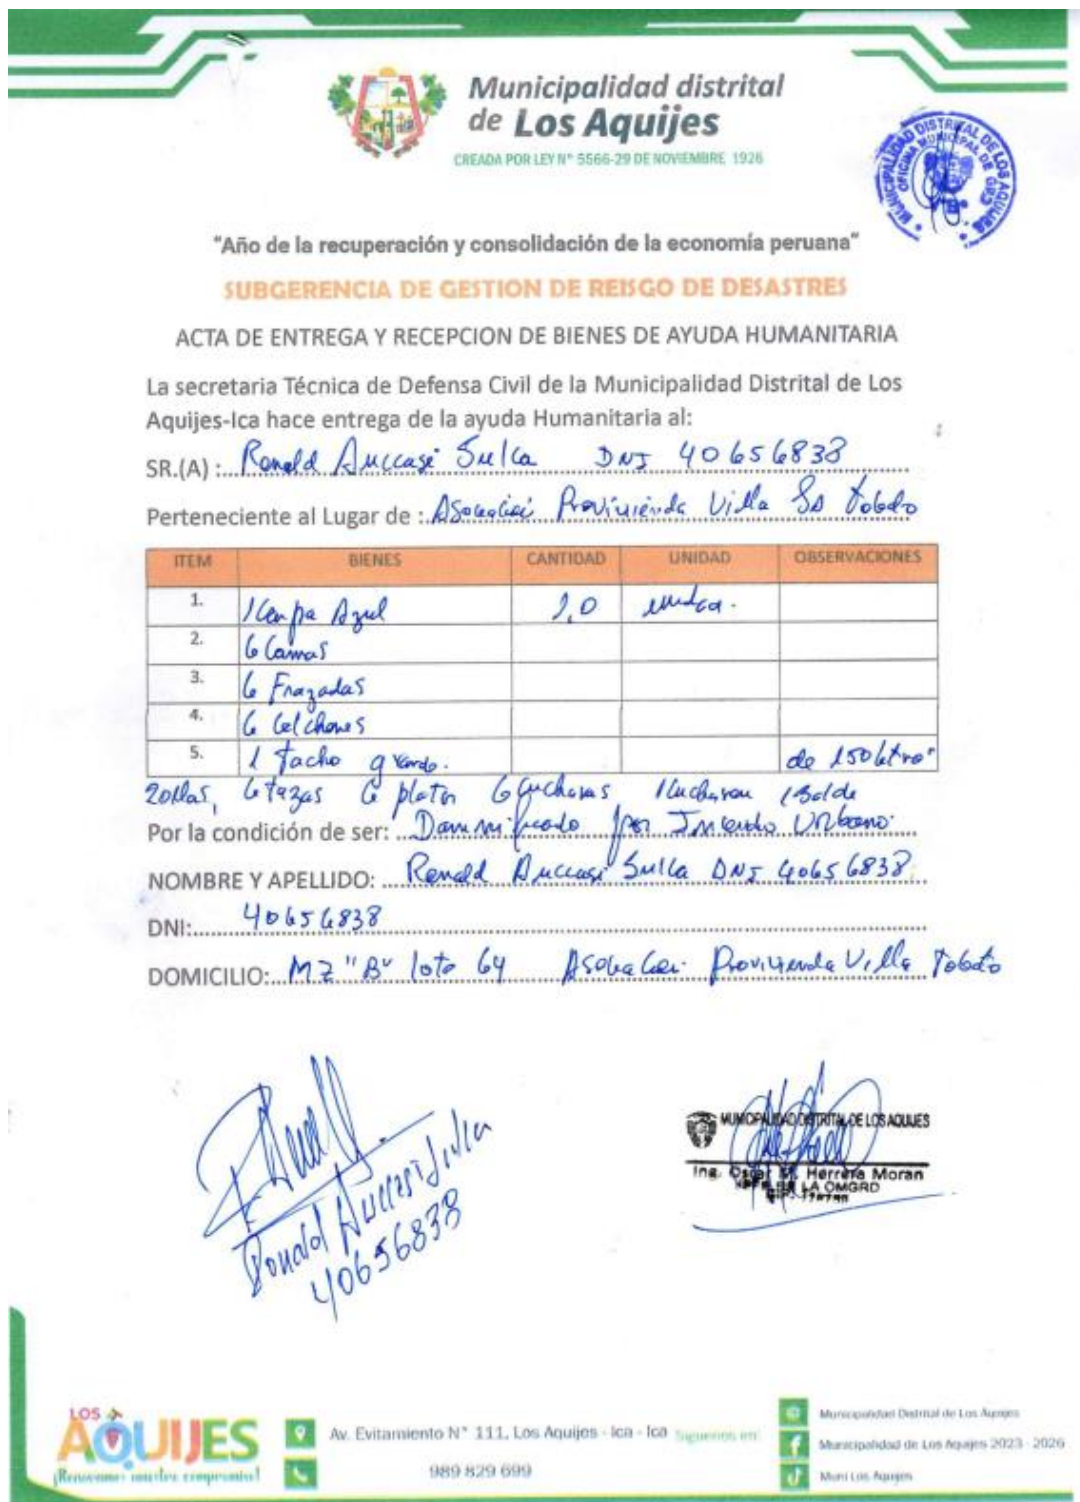 Municipalidad distrital
de Los Aquijes
CREADA POR LEY N° 5566-29 DE NOVIEMBRE 1926
MUNICIPALIDAD DISTRITAL DE LOS AQUIJES
OFICINA MUNICIPAL DE GRD
V°B°
"Año de la recuperación y consolidación de la economía peruana"
SUBGERENCIA DE GESTION DE REISGO DE DESASTRES
ACTA DE ENTREGA Y RECEPCION DE BIENES DE AYUDA HUMANITARIA
La secretaria Técnica de Defensa Civil de la Municipalidad Distrital de Los
Aquijes-Ica hace entrega de la ayuda Humanitaria al:
SR.(A) : Ronald Auccasi Sulca DNI 40656838
Perteneciente al Lugar de : Provivienda Villa Toledo
ITEM BIENES CANTIDAD UNIDAD OBSERVACIONES
1. 1 Carpa Azul 1,0
2. 6 Camas
3. 6 Frazadas
4. 6 Colchones
5. 1 Tacho grande. de 150 litros
2 ollas, 6 tazas 6 platos 6 cucharas 1 cucharon 1 Balde
Por la condición de ser: Damnificado por Incendio Urbano.
NOMBRE Y APELLIDO: Ronald Auccasi Sulca DNI 40656838
DNI: 40656838
DOMICILIO: MZ "B" lote 64 Provivienda Villa Toledo
Ronald Auccasi Sulca
40656838
MUNICIPALIDAD DISTRITAL DE LOS AQUIJES
Ing. Oscar M. Herrera Moran
JEFE DE LA OMGRD
LOS
AQUIJES
¡Renovamos nuestro compromiso!
Av. Evitamiento N° 111, Los Aquijes - Ica - Ica
989 829 699
Siguenos en:
Municipalidad Distrital de Los Aquijes
Municipalidad de Los Aquijes 2023 - 2026
Muni Los Aquijes